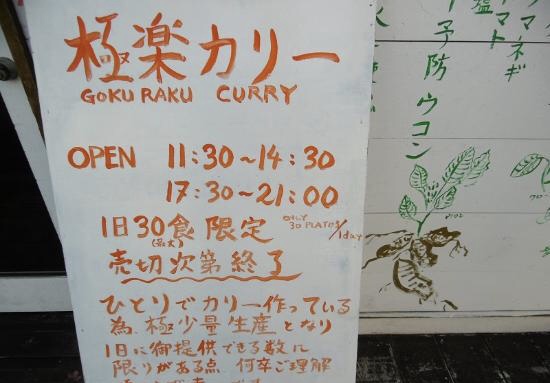 極楽カリー
GOKU RAKU CURRY
OPEN 11:30~14:30
17:30~21:00
1日30食限定
(最大)
ONLY 30 PLATES/1day
売切次第終了
ひとりでカリー作っている
為、極少量生産となり
1日に御提供できる数に
限りがある点、何卒ご理解
タマネギ
トマト
塩
予防ウコン
ウコン